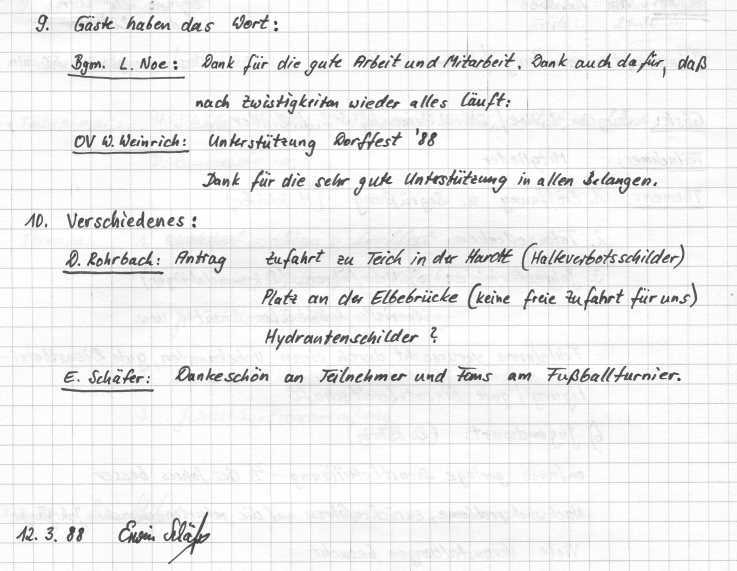 9. Gäste haben das Wort:
Bgm. L. Noe: Dank für die gute Arbeit und Mitarbeit. Dank auch dafür, daß
nach Zwistigkeiten wieder alles läuft:
OV W. Weinrich: Unterstützung Dorffest '88
Dank für die sehr gute Unterstützung in allen Belangen.
10. Verschiedenes:
D. Rohrbach: Antrag Zufahrt zu Teich in der Hardt (Halteverbotsschilder)
Platz an der Elbebrücke (keine freie Zufahrt für uns)
Hydrantenschilder?
E. Schäfer: Dankeschön an Teilnehmer und Fans am Fußballturnier.
12. 3. 88 Erwin Schäfer